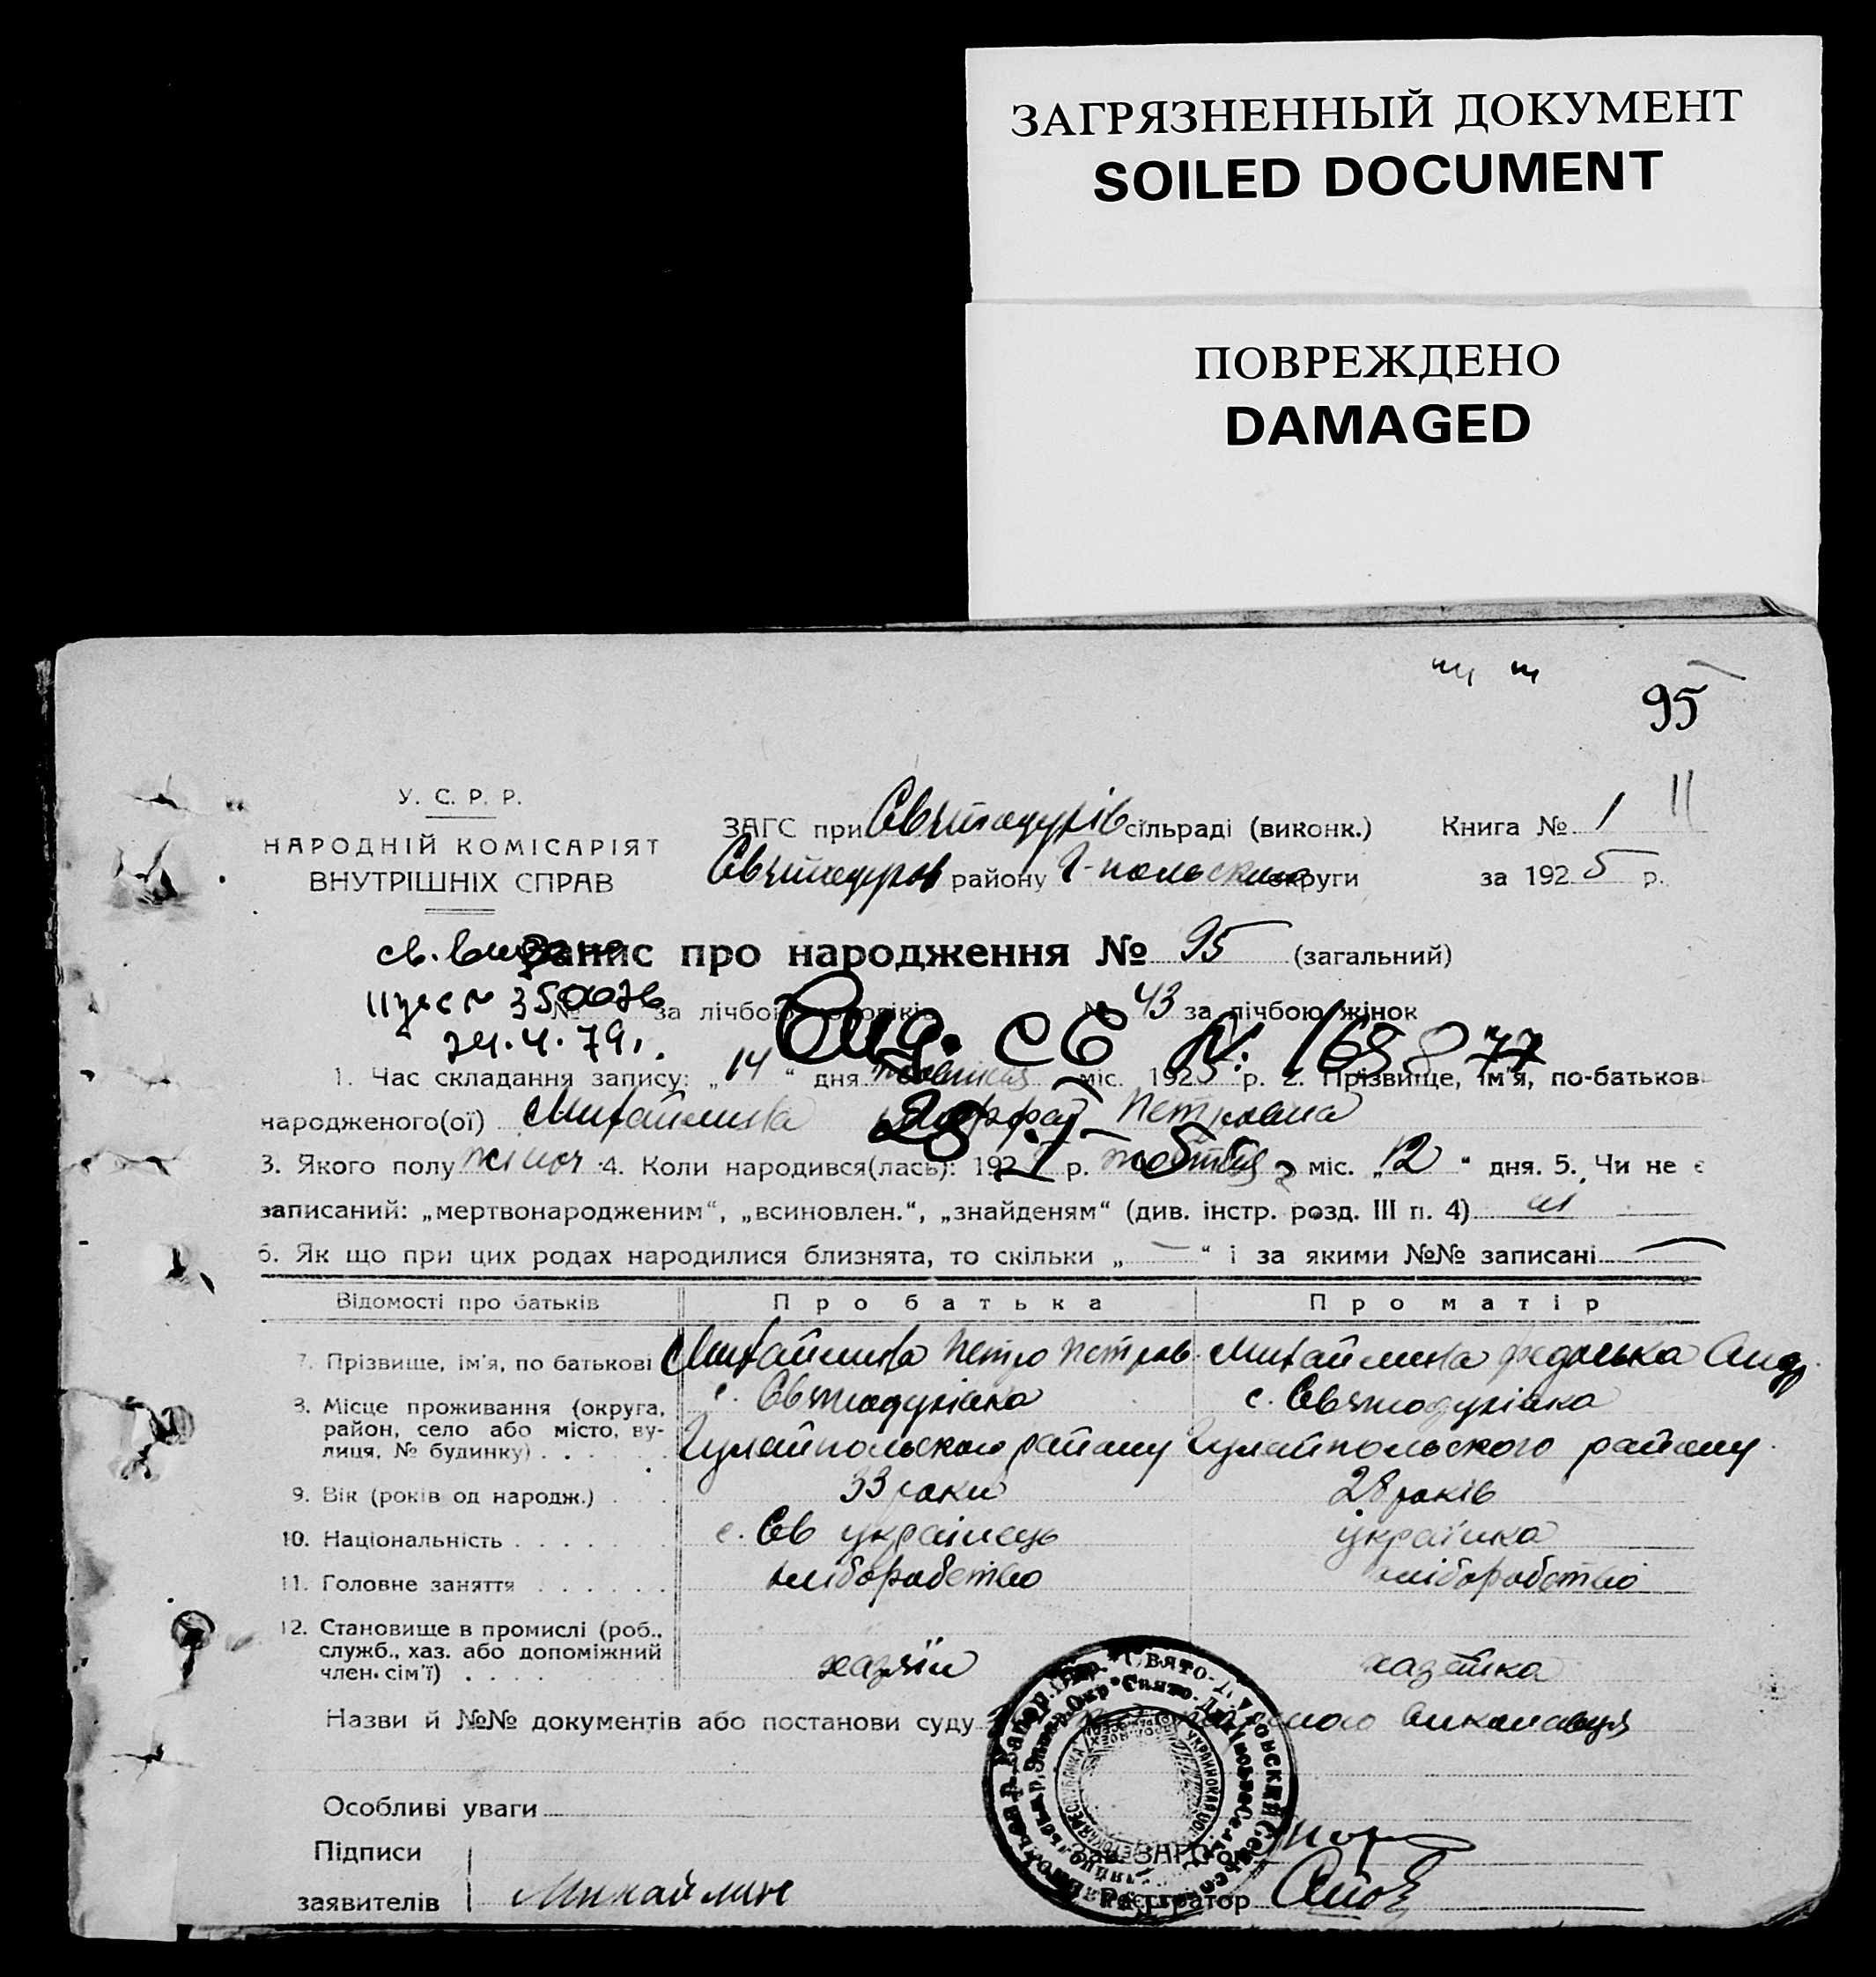 ЗАГРЯЗНЕННЫЙ ДОКУМЕНТ
SOILED DOCUMENT
ПОВРЕЖДЕНО
DAMAGED
95
У. С. Р. Р.
НАРОДНІЙ КОМІСАРІЯТ
ВНУТРІШНІХ СПРАВ
ЗАГС при сільраді (виконк.) Книга № 1 11
району округи за 1925 р.
Запис про народження № 95 (загальний)
№ за лічбою № 43 за лічбою жінок
24.4.79
Вид. св №
1. Час складання запису: „14“ дня міс. 1925 р. 2. Прізвище, ім'я, по-батьков
народженого(ої) Михайлива Петровна
3. Якого полу жіноч 4. Коли народився(лась): 192 р. міс. „12“ дня. 5. Чи не є
записаний: „мертвонародженим“, „всиновлен.“, „знайденям“ (див. інстр. розд. III п. 4)
6. Як що при цих родах народилися близнята, то скільки „—“ і за якими №№ записані —
Відомості про батьків Про батька Про матір
7. Прізвище, ім'я, по батькові Михайлива Петро Петров. Михайлива Федоська Андр.
8. Місце проживання (округа, район, село або місто, вулиця, № будинку) с. Святодухівка с. Святодухівка
Гуляйпольского району Гуляйпольского району
9. Вік (років од народж.) 33 роки 28 років
10. Національність українець українка
11. Головне заняття хліборобство хліборобство
12. Становище в промислі (роб., служб., хаз. або допоміжний член. сім'ї) хазяїн хазяйка
Назви й №№ документів або постанови суду виконавця
Особливі уваги
Підписи
заявителів Михайлин
Зав. ЗАГС'ом
Реєстратор